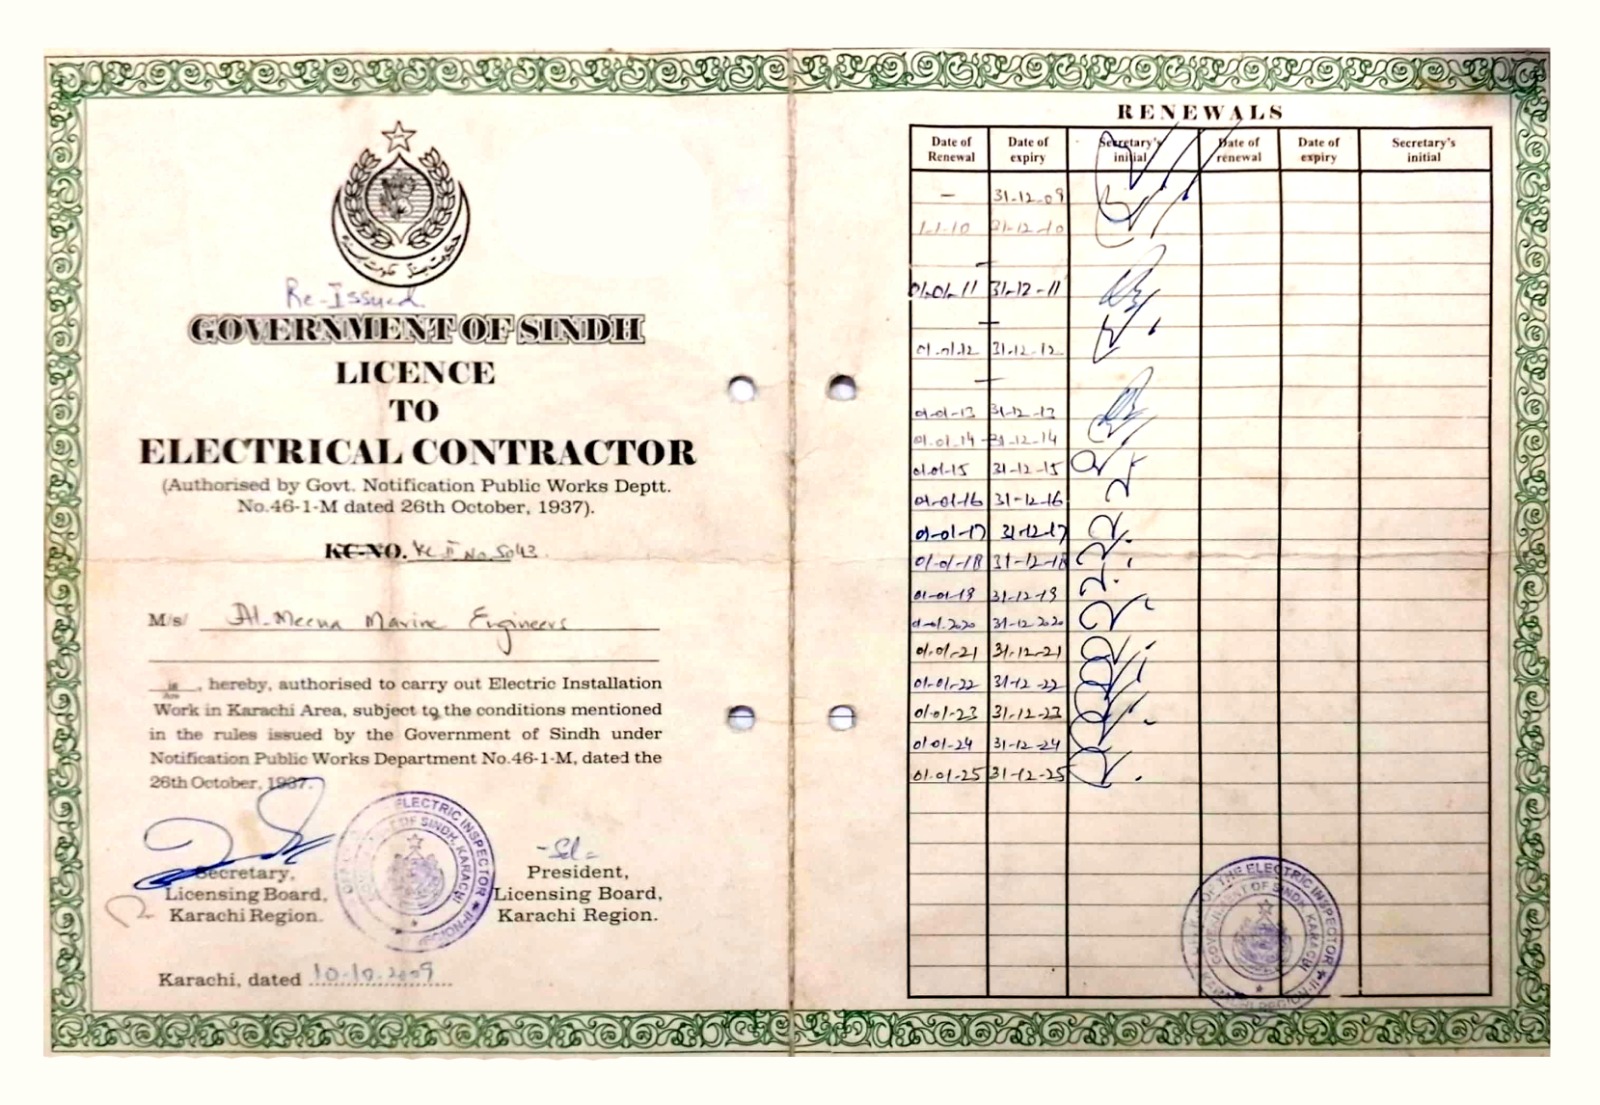 حکومت سندھ
Re-Issued
GOVERNMENT OF SINDH
LICENCE
TO
ELECTRICAL CONTRACTOR
(Authorised by Govt. Notification Public Works Deptt.
No.46-1-M dated 26th October, 1937).
KC-NO. KC II No. 5043
M/s/ Al-Meena Marine Engineers
is
Are , hereby, authorised to carry out Electric Installation
Work in Karachi Area, subject to the conditions mentioned
in the rules issued by the Government of Sindh under
Notification Public Works Department No.46-1-M, dated the
26th October, 1937.
Secretary,
Licensing Board,
Karachi Region.
ELECTRIC INSPECTOR
OF SINDH, KARACHI
-Sd-
President,
Licensing Board,
Karachi Region.
Karachi, dated 10-10-2009
RENEWALS
Date of Renewal Date of expiry Secretary's initial Date of renewal Date of expiry Secretary's initial
— 31-12-09
1-1-10 31-12-10
01-01-11 31-12-11
01-01-12 31-12-12
01-01-13 31-12-13
01-01-14 31-12-14
01-01-15 31-12-15
01-01-16 31-12-16
01-01-17 31-12-17
01-01-18 31-12-18
01-01-19 31-12-19
1-01.2020 31-12.2020
01-01-21 31-12-21
01-01-22 31-12-22
01-01-23 31-12-23
01-01-24 31-12-24
01-01-25 31-12-25
OF THE ELECTRIC INSPECTOR
GOVERNMENT OF SINDH, KARACHI
KARACHI REGION-II